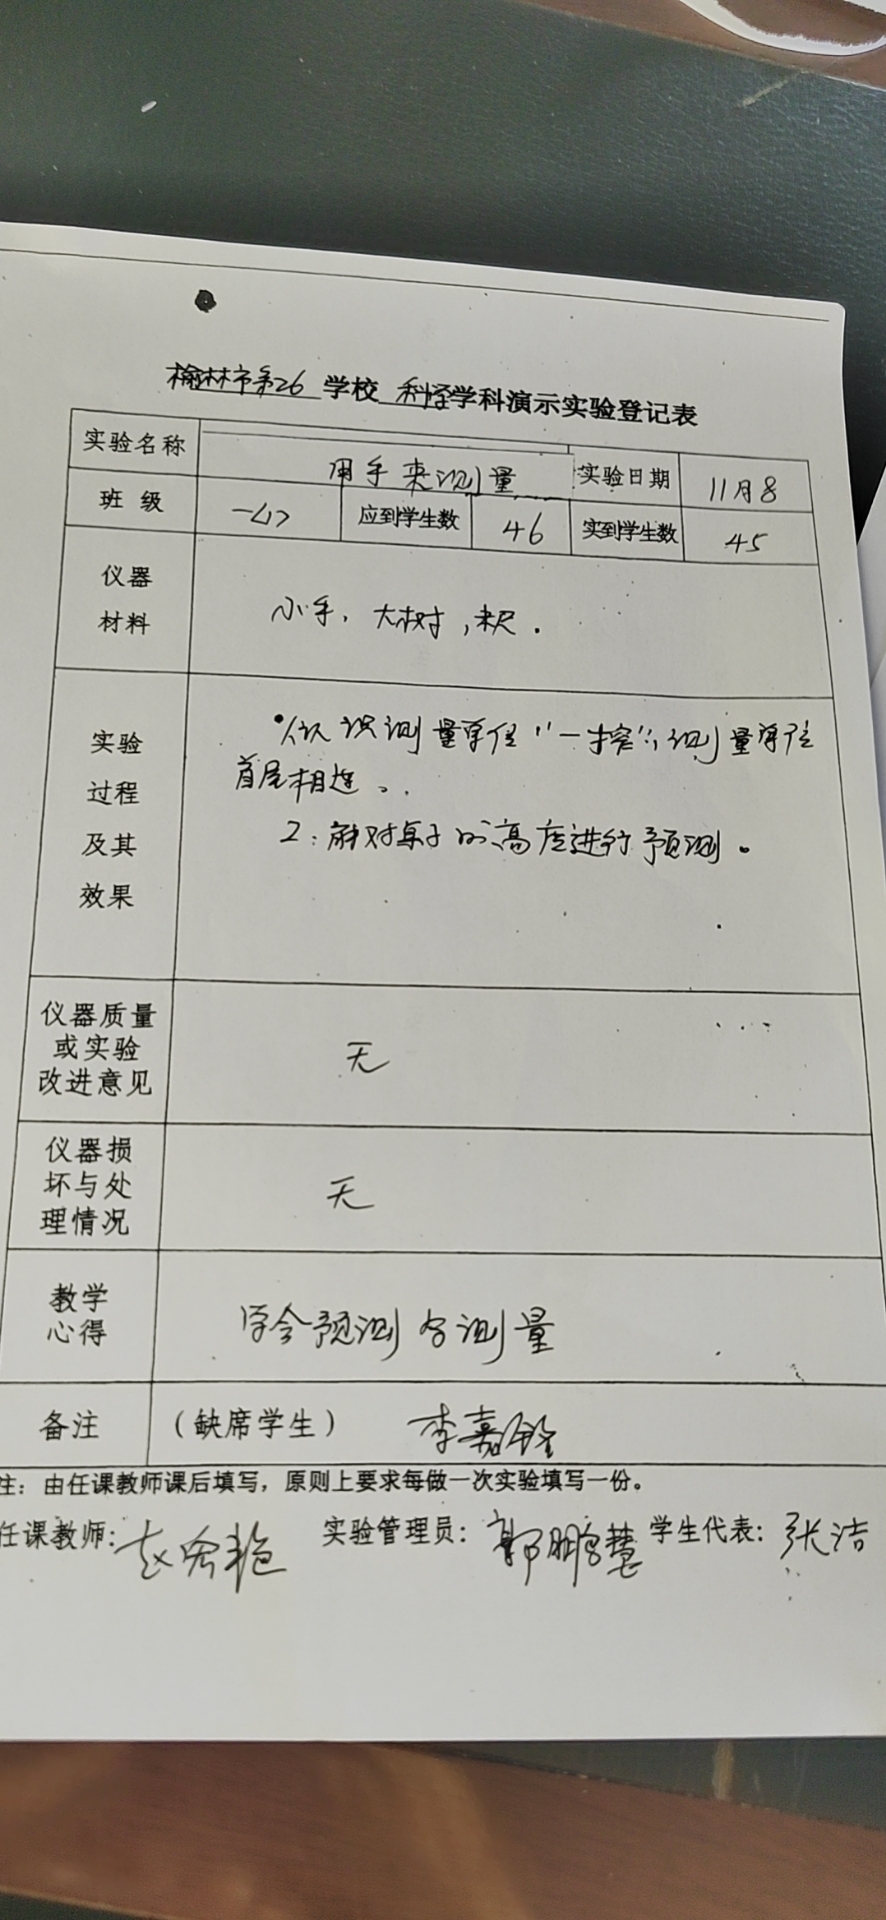 榆林市第26 学校 科学学科演示实验登记表
实验名称 用手来测量 实验日期 11月8
班 级 一<1> 应到学生数 46 实到学生数 45
仪器
材料
小手，大树，米尺．
实验
过程
及其
效果
·认识测量单位"一拃"，测量单位
首尾相连。
2：能对桌子的高度进行预测。
仪器质量
或实验
改进意见
无
仪器损
坏与处
理情况
无
教学
心得
学会预测与测量
备注 (缺席学生) 李嘉铨
注：由任课教师课后填写，原则上要求每做一次实验填写一份。
任课教师: 实验管理员: 郭鹏慧 学生代表: 张洁